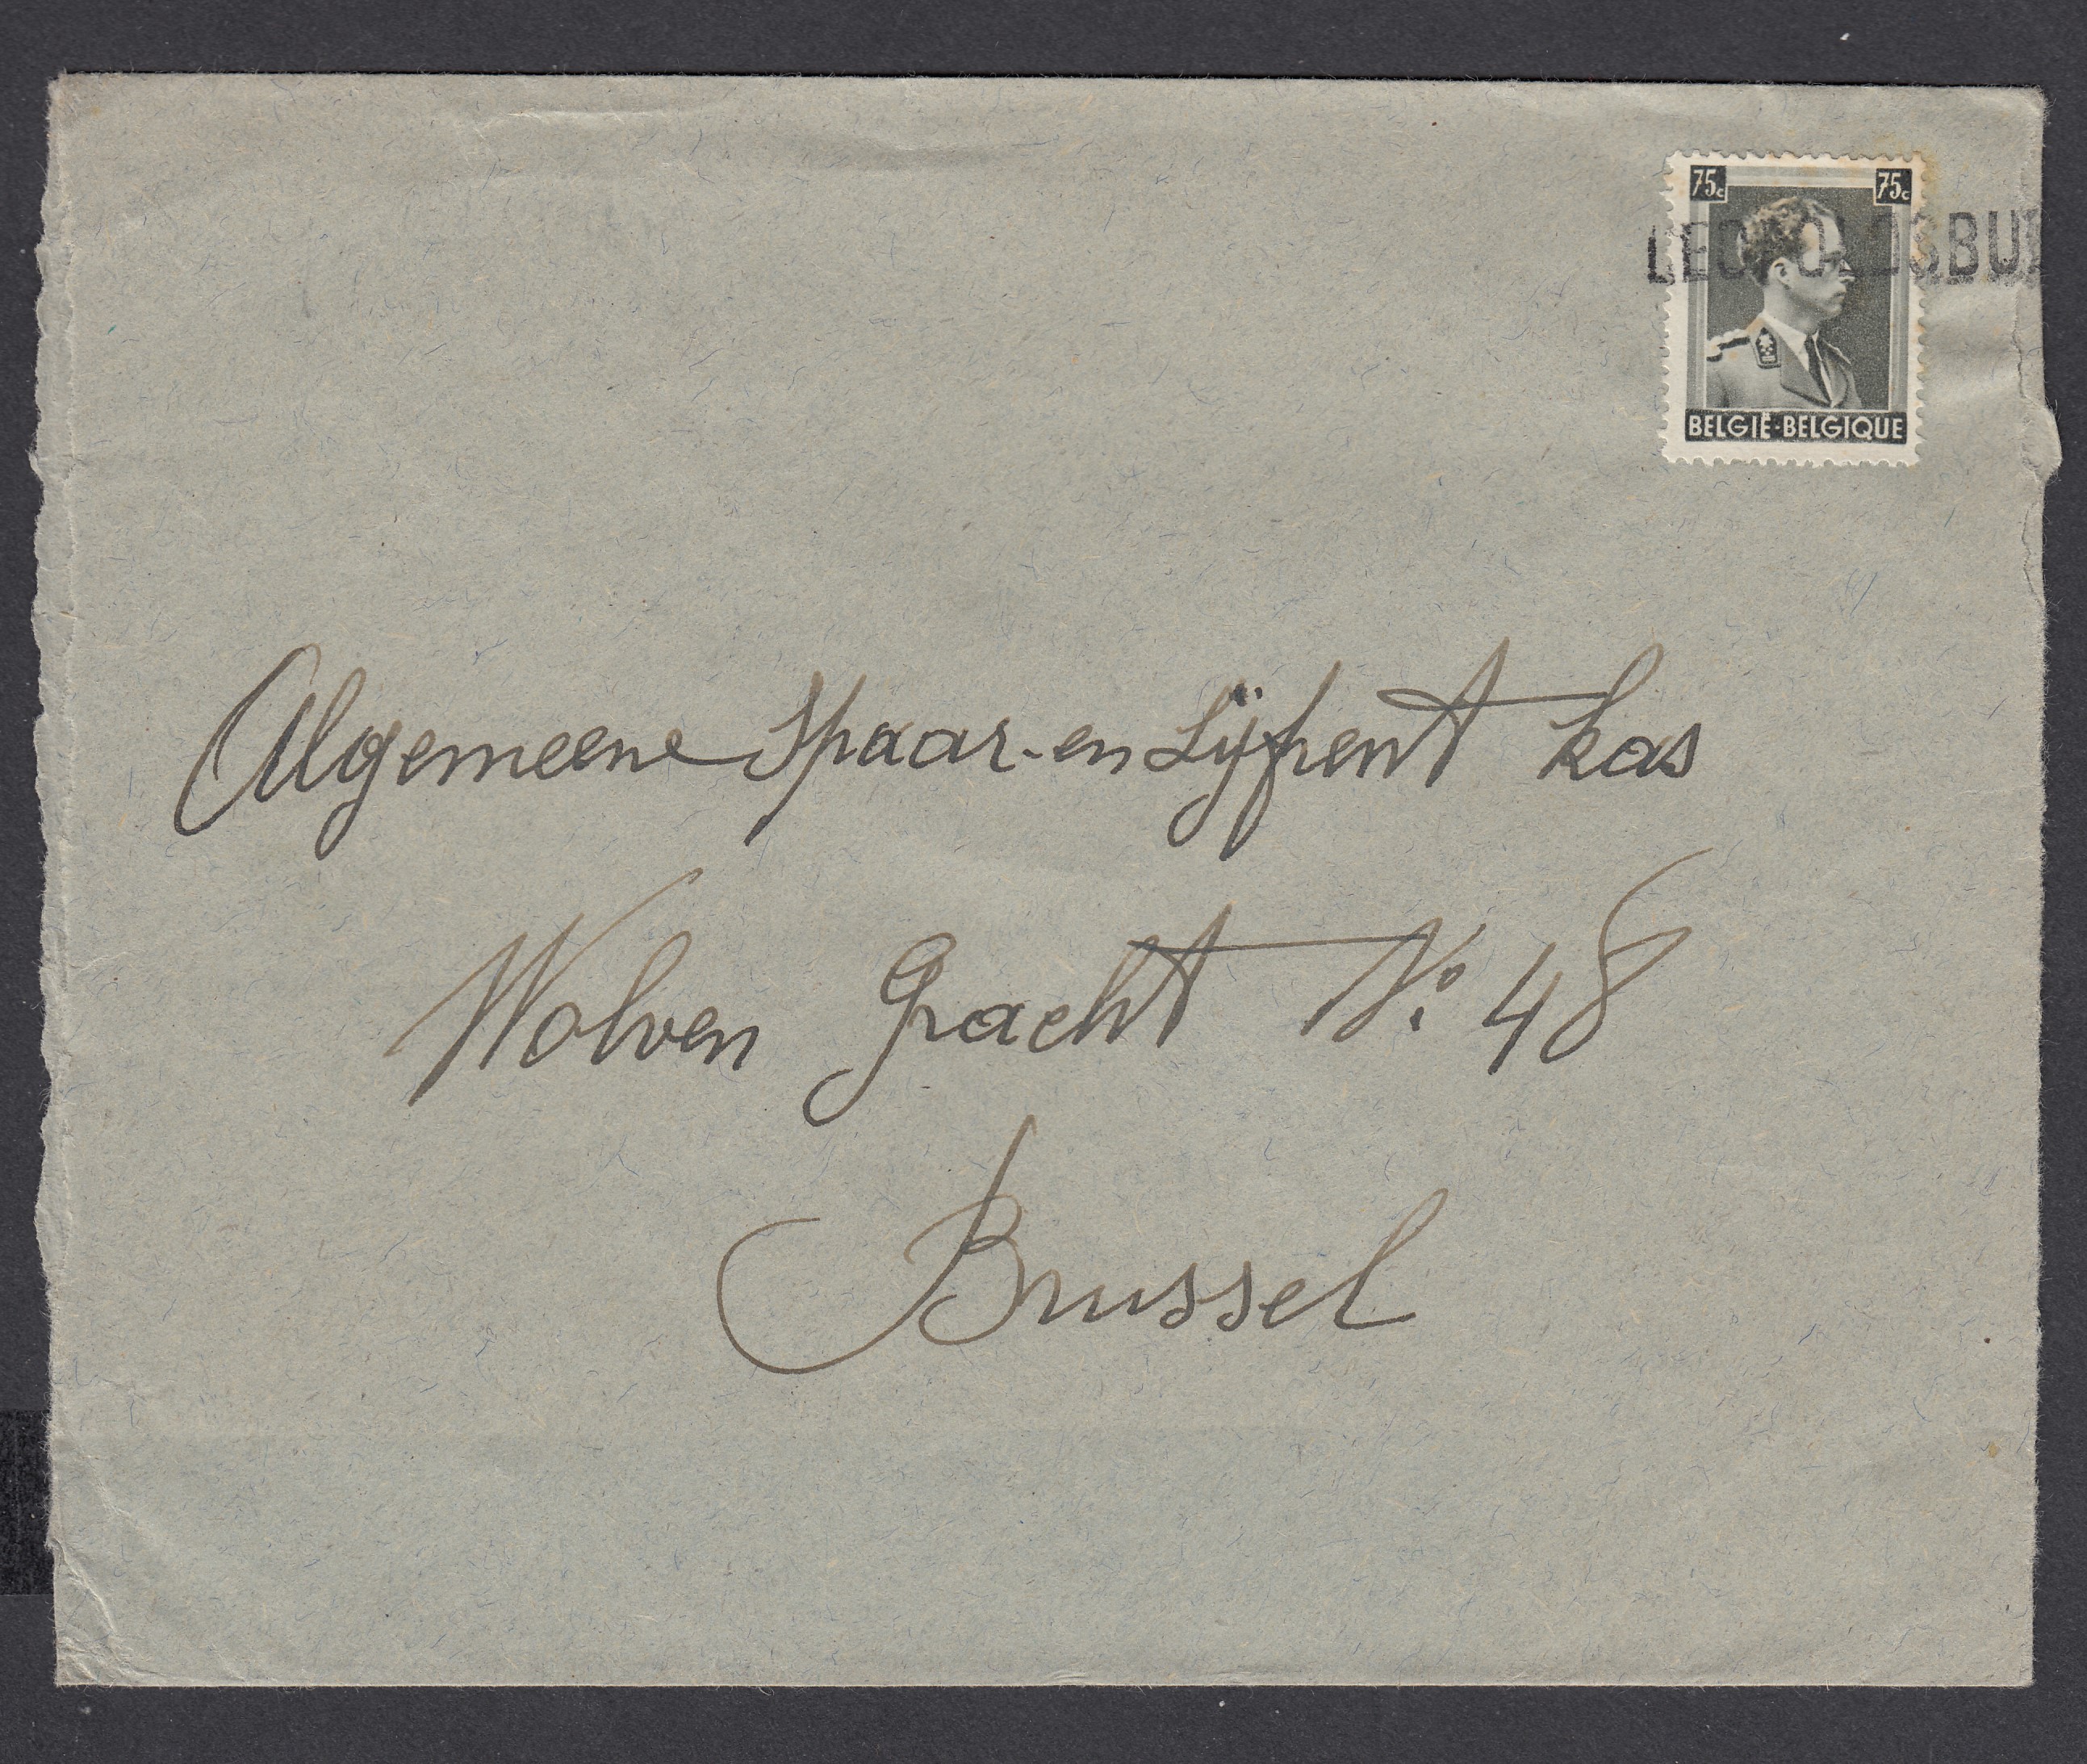 75c 75c
LEOPOLDSBU
BELGIË·BELGIQUE
Algemeene Spaar-en Lijfrent kas
Wolven Gracht No: 48
Brussel